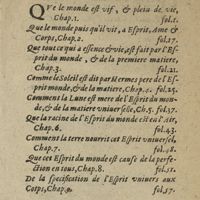 QVe le monde est vif, & plein de vie,
Chap.1. fol.1.
Que le monde puis qu'il vit, a Esprit, Ame &
Corps, Chap.2. fol.17.
Que tout ce qui a essence & vie, est fait par l'Es-
prit du monde, & de la premiere matiere,
Chap.3. fol.21.
Comme le Soleil est dit par Hermes pere de l'Es-
prit monde, & de la matiere, Chap.4. fol.25.
Comment la Lune est mere de l'Esprit du mon-
de, & de la matiere universelle, Ch.5. fol.37.
Que la racine de l'Esprit du monde est en l'air,
Chap.6. fol.43.
Comment la terre nourrit cet Esprit universel,
Chap.7. fol.48.
Que cet Esprit du monde est cause de la perfe-
ction en tous, Chap.8. fol.51.
De la specification de l'Esprit univers aux
Corps, Chap.9. fol.57.